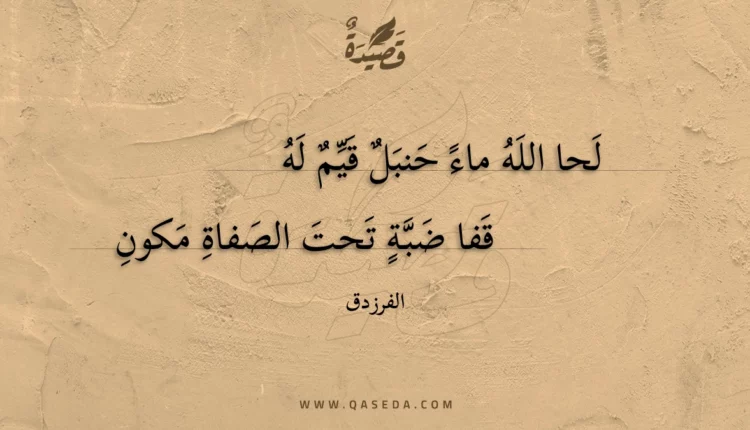 قَصِيدَةٌ
لَحا اللَهُ ماءً حَنبَلٌ قَيِّمٌ لَهُ
قَفا ضَبَّةٍ تَحتَ الصَفاةِ مَكونِ
الفرزدق
WWW.QASEDA.COM